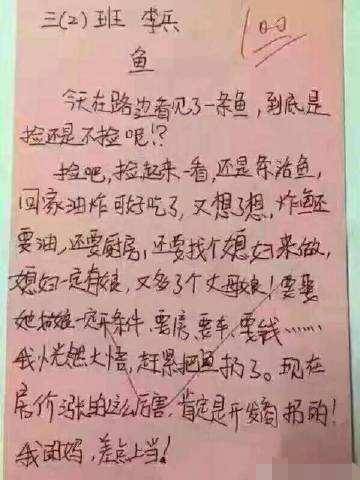 三(2)班 李兵
100
鱼
今天在路边看见了一条鱼,到底是
捡还是不捡呢!?
捡吧,捡起来一看,还是条活鱼,
回家油炸可好吃了,又想了想,炸鱼还
要油,还要厨房,还要找个媳妇来做,
媳妇一定有娘,又多了个丈母娘!要娶
她 娘一定开条件,要房,要车,要钱……
我恍然大悟,赶紧把鱼扔了。现在
房价涨的这么厉害,肯定是开发商扔的!
我 妈,差点上当!